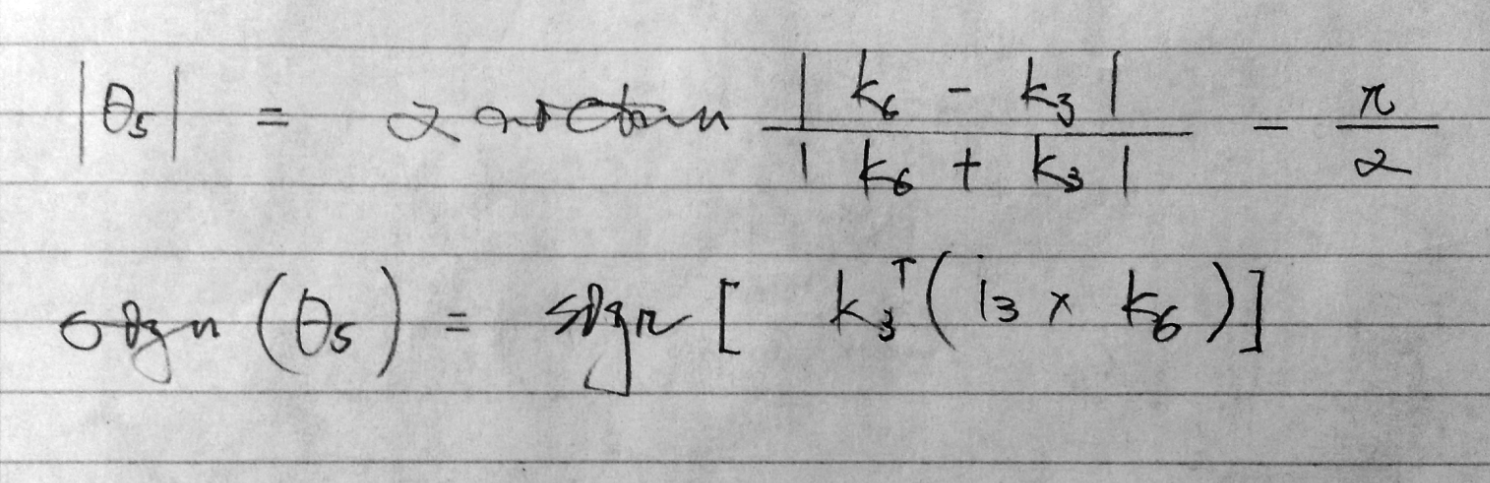 |θ₅| = 2 arctan |k₆ - k₃| / |k₆ + k₃| - π/2
sign (θ₅) = sign [ k₃ᵀ( i₃ × k₆ ) ]